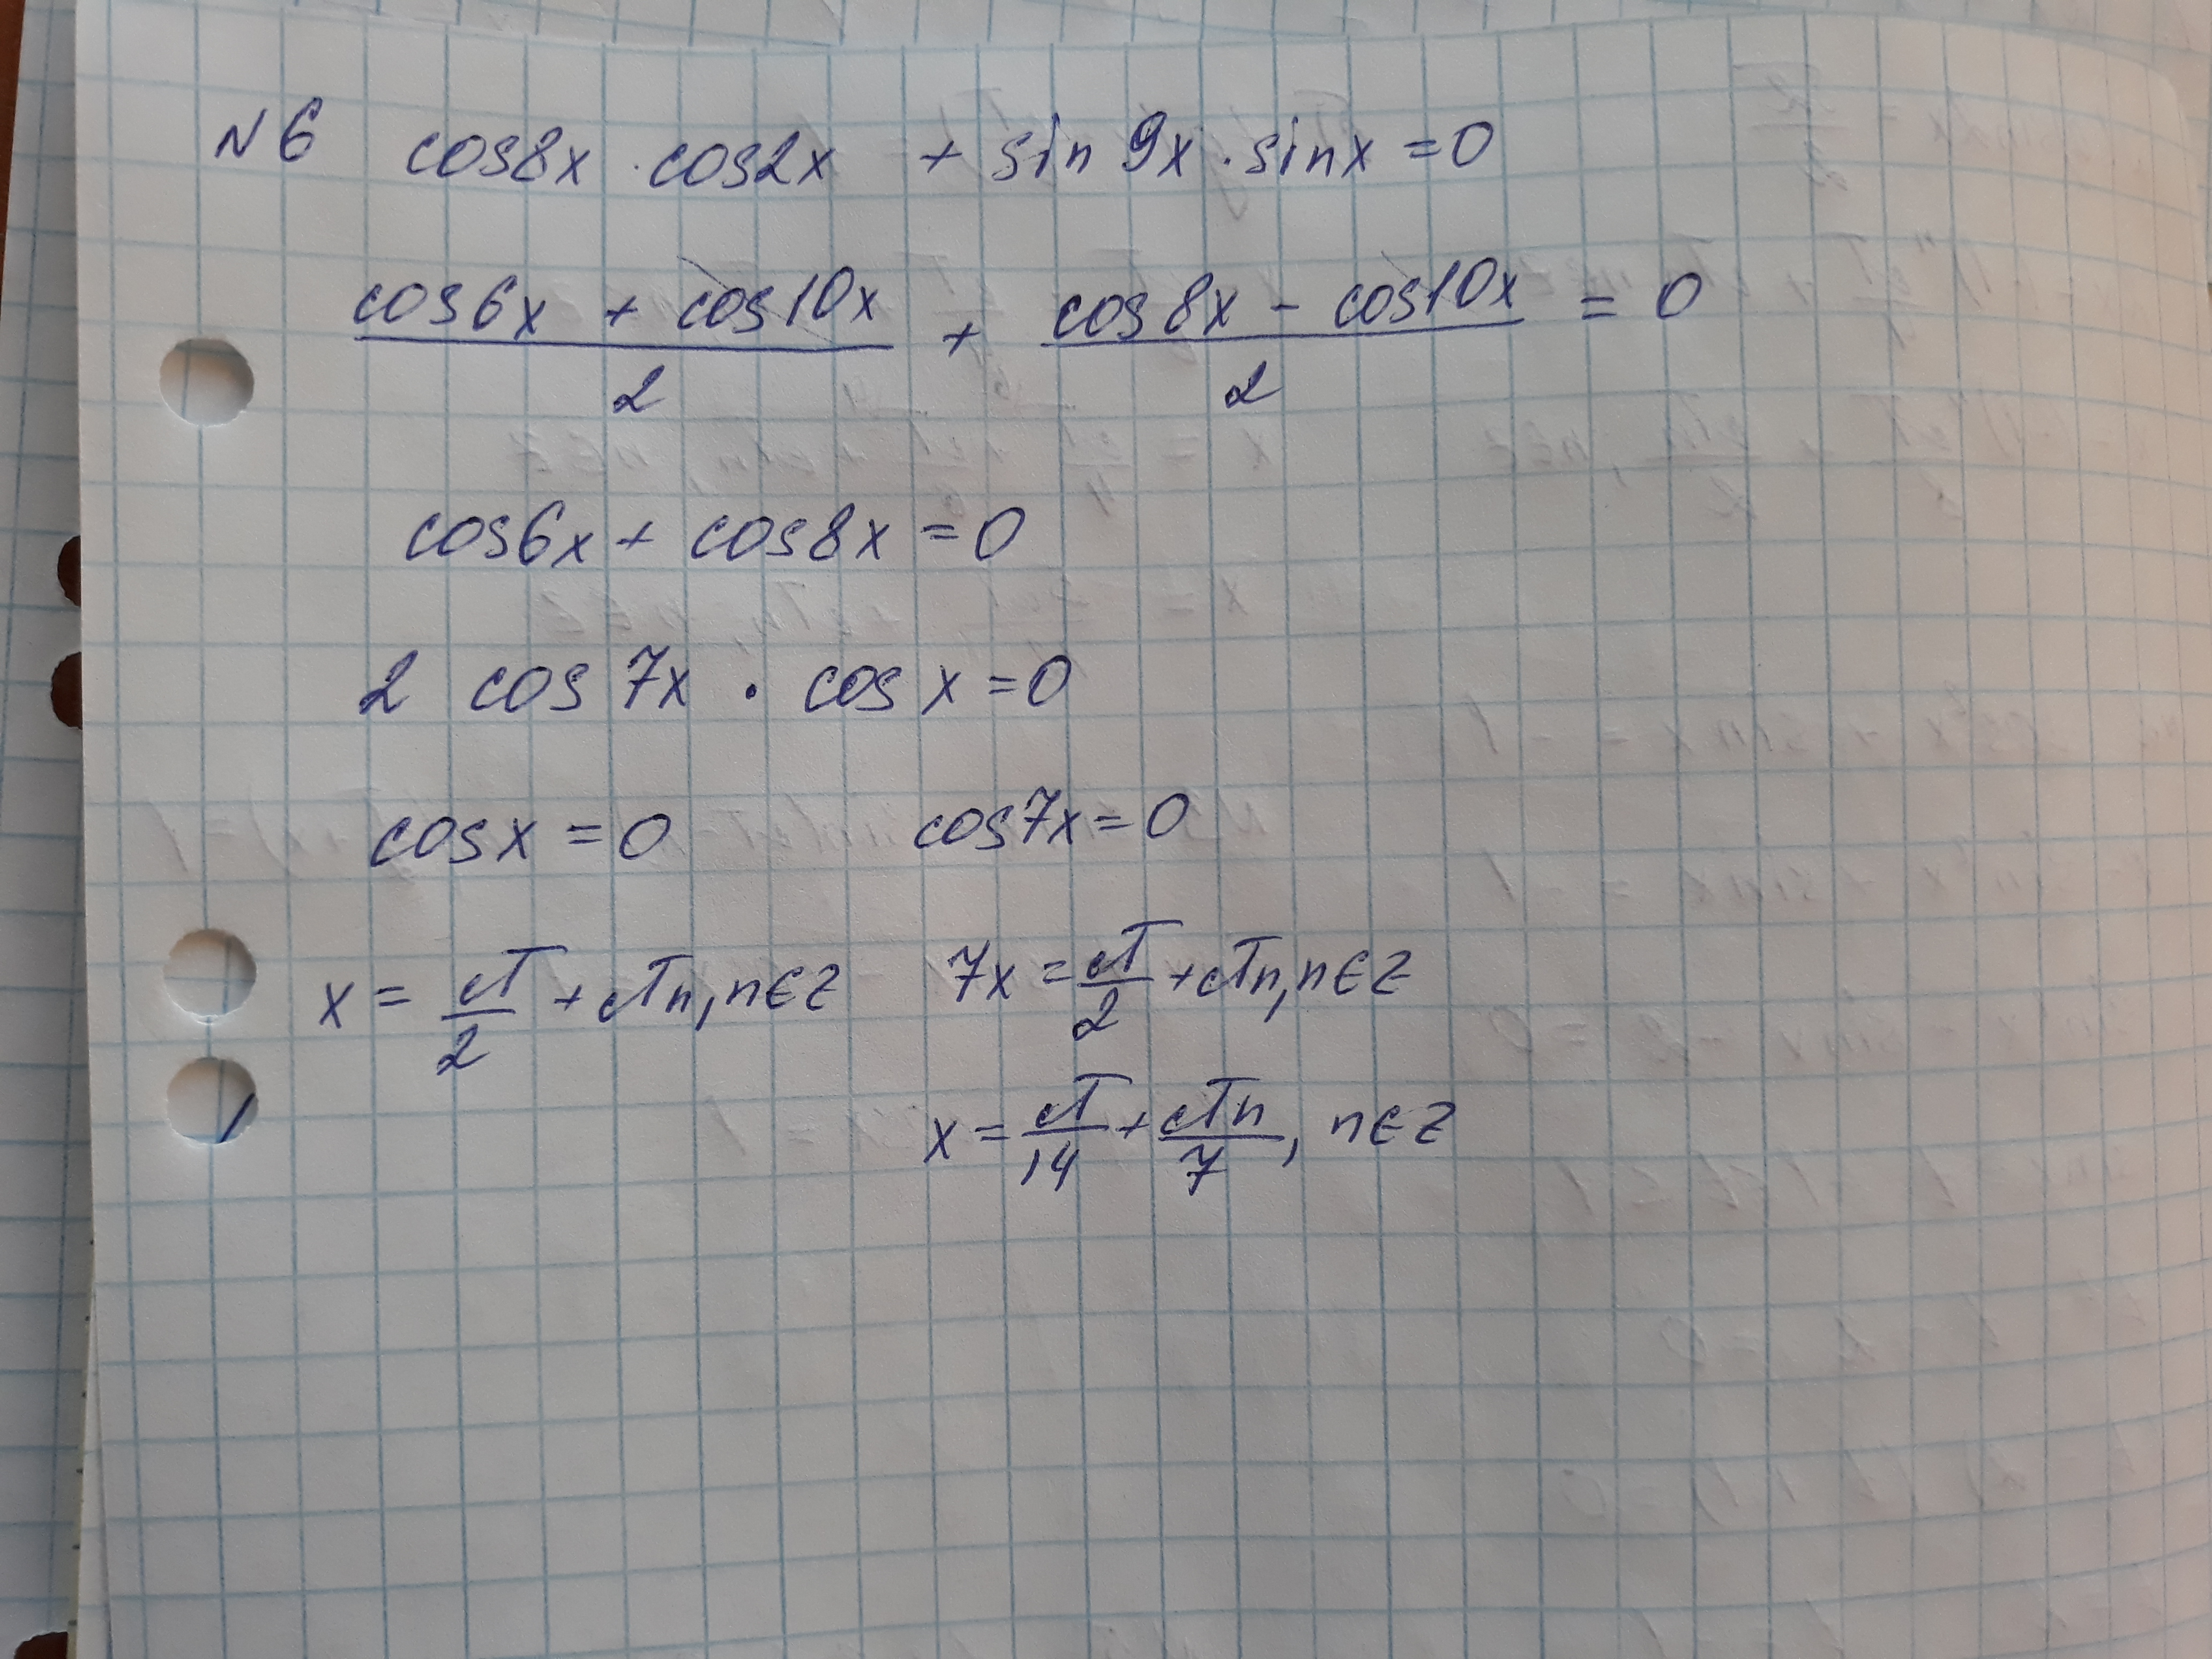 N6 cos8x · cos2x + sin 9x · sinx = 0
(cos6x + cos10x)/2 + (cos8x - cos10x)/2 = 0
cos6x + cos8x = 0
2 cos 7x · cos x = 0
cosx = 0 cos7x = 0
x = π/2 + πn, n∈Z 7x = π/2 + πn, n∈Z
x = π/14 + πn/7, n∈Z